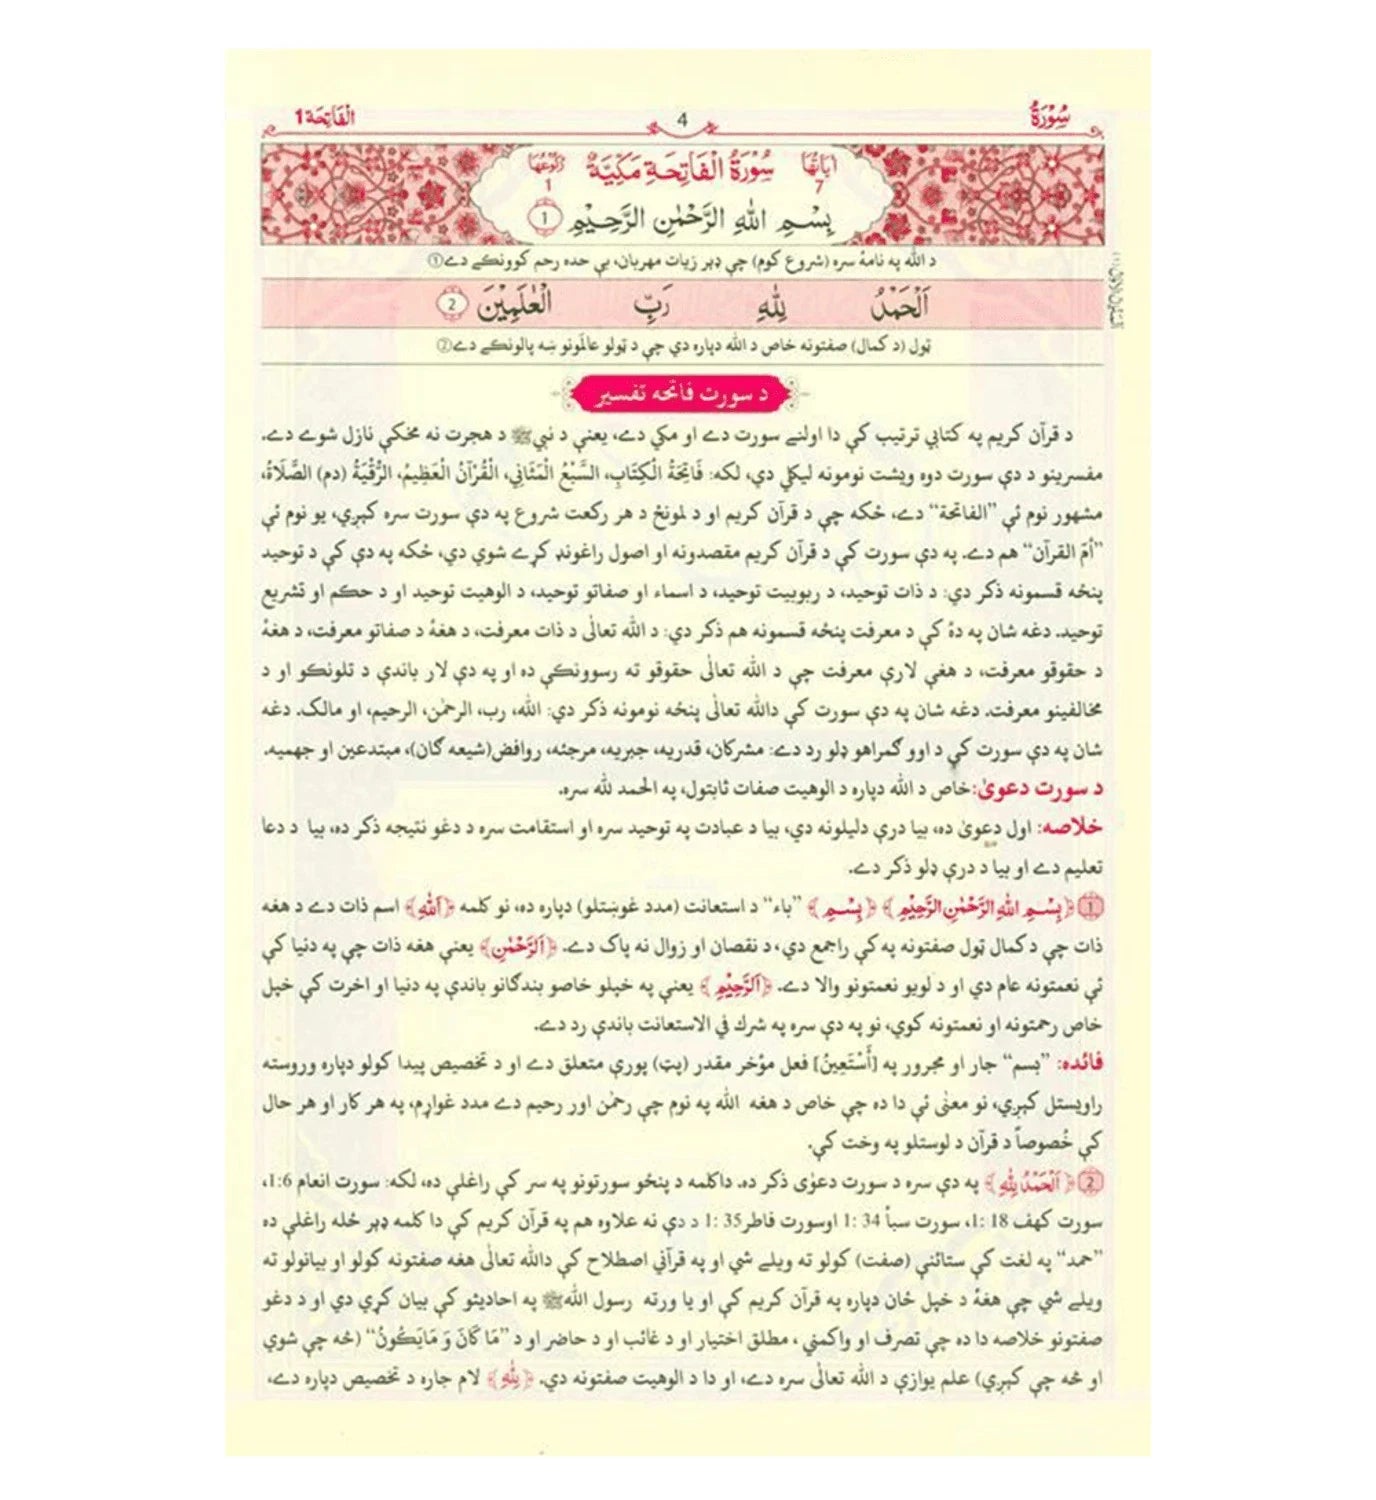 سُوْرَةُ
4
الْفَاتِحَة 1
اٰيَاتُهَا 7 سُوْرَةُ الْفَاتِحَةِ مَكِّيَّةٌ رُكُوْعُهَا 1
بِسْمِ اللهِ الرَّحْمٰنِ الرَّحِيْمِ 1
د الله په نامۀ سره (شروع کوم) چې ډېر زيات مهربان، بې حده رحم کوونکے دے①
اَلْحَمْدُ لِلّٰهِ رَبِّ الْعٰلَمِيْنَ 2
ټول (د کمال) صفتونه خاص د الله دپاره دي چې د ټولو عالَمونو ښه پالونکے دے②
د سورت فاتحه تفسير
د قرآن کريم په کتابي ترتيب کې دا اولنے سورت دے او مکي دے، يعنې د نبيﷺ د هجرت نه مخکې نازل شوے دے.
مفسرينو د دې سورت دوه ويشت نومونه ليکلي دي، لکه: فَاتِحَةُ الْكِتَابِ، السَّبْعُ الْمَثَانِي، الْقُرْآنُ الْعَظِيمُ، الرُّقْيَةُ (دم) الصَّلَاةُ،
مشهور نوم ئې ”الفاتحة“ دے، ځکه چې د قرآن کريم او د لمونځ د هر رکعت شروع په دې سورت سره کېږي، يو نوم ئې
”أمّ القرآن“ هم دے. په دې سورت کې د قرآن کريم مقصدونه او اصول راغونډ کړے شوي دي، ځکه په دې کې د توحيد
پنځه قسمونه ذکر دي: د ذات توحيد، د ربوبيت توحيد، د اسماء او صفاتو توحيد، د الوهيت توحيد او د حکم او تشريع
توحيد. دغه شان په دۀ کې د معرفت پنځه قسمونه هم ذکر دي: د الله تعالٰی د ذات معرفت، د هغۀ د صفاتو معرفت، د هغۀ
د حقوقو معرفت، د هغې لارې معرفت چې د الله تعالٰی حقوقو ته رسوونکې ده او په دې لار باندې د تلونکو او د
مخالفينو معرفت. دغه شان په دې سورت کې دالله تعالٰی پنځه نومونه ذکر دي: الله، رب، الرحمٰن، الرحيم، او مالک. دغه
شان په دې سورت کې د اوو ګمراهو ډلو رد دے: مشرکان، قدريه، جبريه، مرجئه، روافض(شيعه ګان)، مبتدعين او جهميه.
د سورت دعویٰ:خاص د الله دپاره د الوهيت صفات ثابتول، په الحمد لله سره.
خلاصه: اول دعویٰ ده، بيا درې دليلونه دي، بيا د عبادت په توحيد سره او استقامت سره د دغو نتيجه ذکر ده، بيا د دعا
تعليم دے او بيا د درې ډلو ذکر دے.
1 ﴿بِسْمِ اللهِ الرَّحْمٰنِ الرَّحِيْمِ﴾ ﴿بِسْمِ﴾ ”باء“ د استعانت (مدد غوښتلو) دپاره ده، نو کلمه ﴿اَللهِ﴾ اسم ذات دے د هغه
ذات چې د کمال ټول صفتونه په کې راجمع دي، د نقصان او زوال نه پاک دے. ﴿اَلرَّحْمٰنِ﴾ يعنې هغه ذات چې په دنيا کې
ئې نعمتونه عام دي او د لويو نعمتونو والا دے. ﴿اَلرَّحِيْمِ﴾ يعنې په خپلو خاصو بندګانو باندې په دنيا او اخرت کې خپل
خاص رحمتونه او نعمتونه کوي، نو په دې سره په شرك في الاستعانت باندې رد دے.
فائده: ”بسم“ جار او مجرور په [أَسْتَعِينُ] فعل مؤخر مقدر (پټ) پورې متعلق دے او د تخصيص پيدا کولو دپاره وروسته
راويستل کېږي، نو معنٰی ئې دا ده چې خاص د هغه الله په نوم چې رحمٰن اور رحيم دے مدد غواړم، په هر کار او هر حال
کې خُصوصاً د قرآن د لوستلو په وخت کې.
2 ﴿اَلْحَمْدُ لِلّٰهِ﴾ په دې سره د سورت دعوٰی ذکر ده. داکلمه د پنځو سورتونو په سر کې راغلې ده، لکه: سورت انعام 1:6،
سورت کهف 18 :1، سورت سبأ 34 :1 اوسورت فاطر35 :1 د دې نه علاوه هم په قرآن کريم کې دا کلمه ډېر ځله راغلې ده
”حمد“ په لغت کې ستائنې (صفت) کولو ته ويلے شي او په قرآني اصطلاح کې دالله تعالٰی هغه صفتونه کولو او بيانولو ته
ويلے شي چې هغۀ د خپل ځان دپاره په قرآن کريم کې او يا ورته رسول اللهﷺ په احاديثو کې بيان کړي دي او د دغو
صفتونو خلاصه دا ده چې تصرف او واکمني ، مطلق اختيار او د غائب او د حاضر او د ”مَا كَانَ وَ مَايَكُونُ“ (څه چې شوي
او څه چې کېږي) علم يوازې د الله تعالٰی سره دے، او دا د الوهيت صفتونه دي. ﴿لِلّٰهِ﴾ لام جاره د تخصيص دپاره دے،